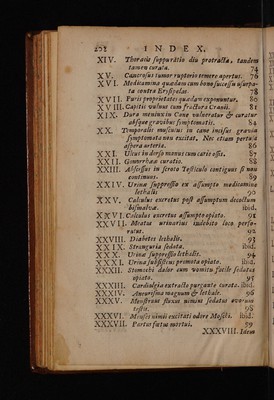 202 INDEX.
XIV. Thoracis suppuratio diu protracta, tandem
tamen curata. 74
XV. Cancrosus tumor ruptorio temere apertus. 76
XVI. Medicamina quædam cum bono successu usurpa-
ta contra Erysipelas 78
XVII. Puris proprietates quædam expenuntur. 80
XVIII. Capitis vulnus cum fractura Cranii. 81
XIX. Dura meninx in Cane vulneratur & curatur
absque gravibus symptomatis. 84
XX. Temporalis musculus in cane incisus gravia
symptomata non excitat. Nec etiam pertusa
aspera arteria. 86
XXI. Ulcus in dorso manus cum carie ossis. 87
XXII. Gonorrhææ curatio. 88
XXIII. Abscessus in scroto Testiculo contiguus si non
continuus. 89
XXIV. Urina suppressa ex assumpto medicamina
lethalis 90
XXV. Calculus excretus post assumptum decoctum
bismalvæ. ibid.
XXVI. Calculus excretus assumpto opiato. 91
XXVII. Meatus urinarius indebito loco perfo-
ratus. 92
XXVIII. Diabetes lethalis. 93
XXIX. Stranguria sedata. ibid.
XXX. Urinæ suppressio lethalis. 94
XXXI. Urina subsistens promota opiato. ibid.
XXXII. Stomachi dolor cum vomitu facile sedatus
opiato. 95
XXXIII. Cardialgia extracto purgante curata. ibid.
XXXIV. Aneurisma magnum & lethale. 96
XXXV. Menstrui fluxus nimius sedatus ovorum
testis. 98
XXXVI. Menses nimii excitati odore Moschi. ibid.
XXXVII. Partus fœtus mortui. 99
XXXVIII. Idem